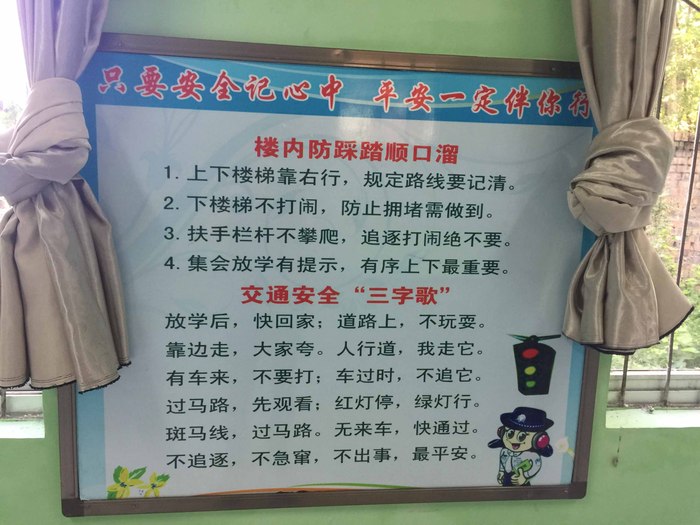 只要安全记心中 平安一定伴你行
楼内防踩踏顺口溜
1. 上下楼梯靠右行，规定路线要记清。
2. 下楼梯不打闹，防止拥堵需做到。
3. 扶手栏杆不攀爬，追逐打闹绝不要。
4. 集会放学有提示，有序上下最重要。
交通安全“三字歌”
放学后，快回家；道路上，不玩耍。
靠边走，大家夸。人行道，我走它。
有车来，不要打；车过时，不追它。
过马路，先观看；红灯停，绿灯行。
斑马线，过马路。无来车，快通过。
不追逐，不急窜，不出事，最平安。